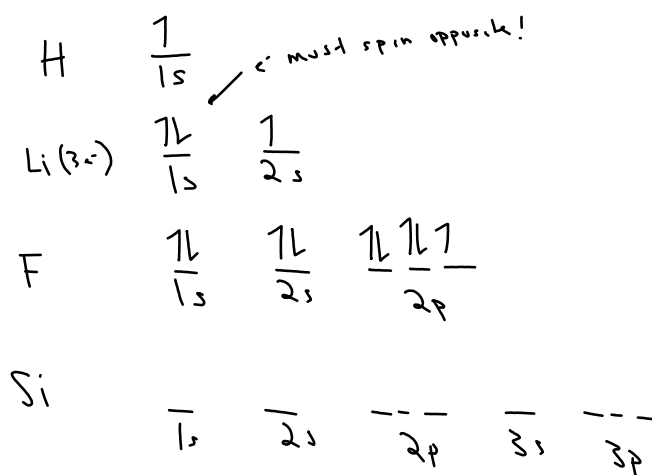 H 1s
e⁻ must spin opposite!
Li (3e⁻) 1s 2s
F 1s 2s 2p
Si 1s 2s 2p 3s 3p